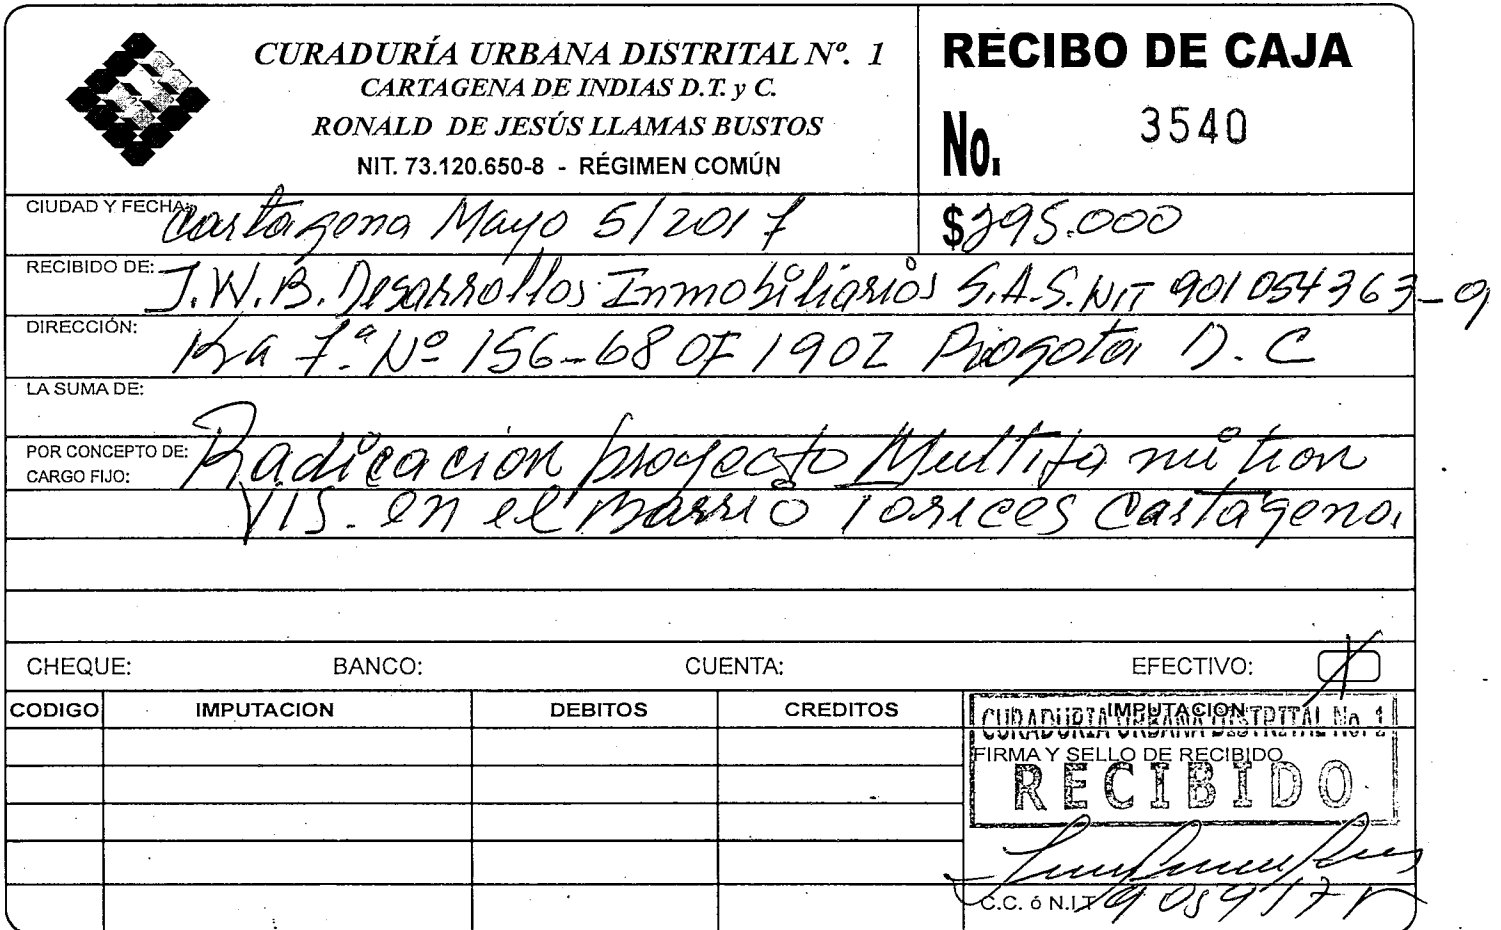 CURADURÍA URBANA DISTRITAL Nº. 1
CARTAGENA DE INDIAS D.T. y C.
RONALD DE JESÚS LLAMAS BUSTOS
NIT. 73.120.650-8 - RÉGIMEN COMÚN
RECIBO DE CAJA
No. 3540
CIUDAD Y FECHA: Cartagena Mayo 5/2017
$295.000
RECIBIDO DE: J.W.B. Desarrollos Inmobiliarios S.A.S. NIT 901054363-9
DIRECCIÓN: Kra 7ª Nº 156-68 OF 1902 Bogota D.C
LA SUMA DE:
POR CONCEPTO DE: Radicación proyecto
CARGO FIJO:
VIS. en el Barrio Torices Cartagena.
CHEQUE: BANCO: CUENTA: EFECTIVO: X
CODIGO IMPUTACION DEBITOS CREDITOS IMPUTACION
CURADURIA URBANA DISTRITAL No. 1
FIRMA Y SELLO DE RECIBIDO
RECIBIDO
C.C. ó N.I.T